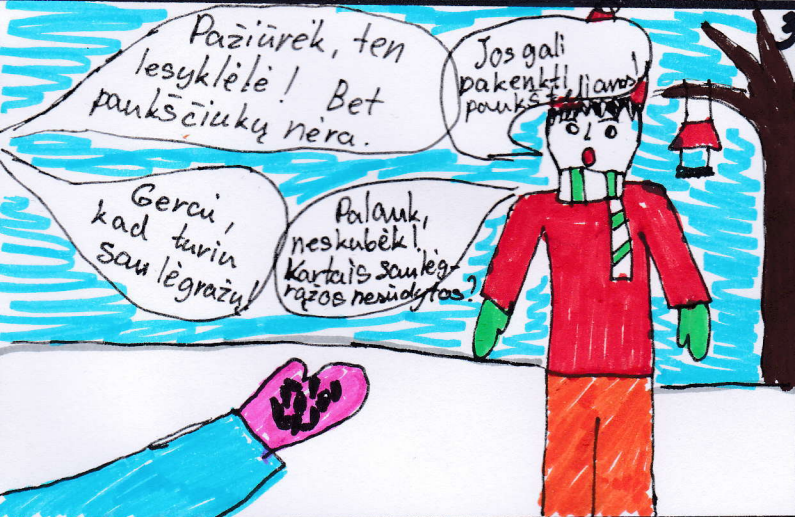 3
Pažiūrėk, ten
lesyklėlė! Bet
paukščiukų nėra.
Jos gali
pakenkti
Gerai,
kad turiu
saulėgražų!
Palauk,
neskubėk!
Kartais saulėg-
rąžos nesūdytos?